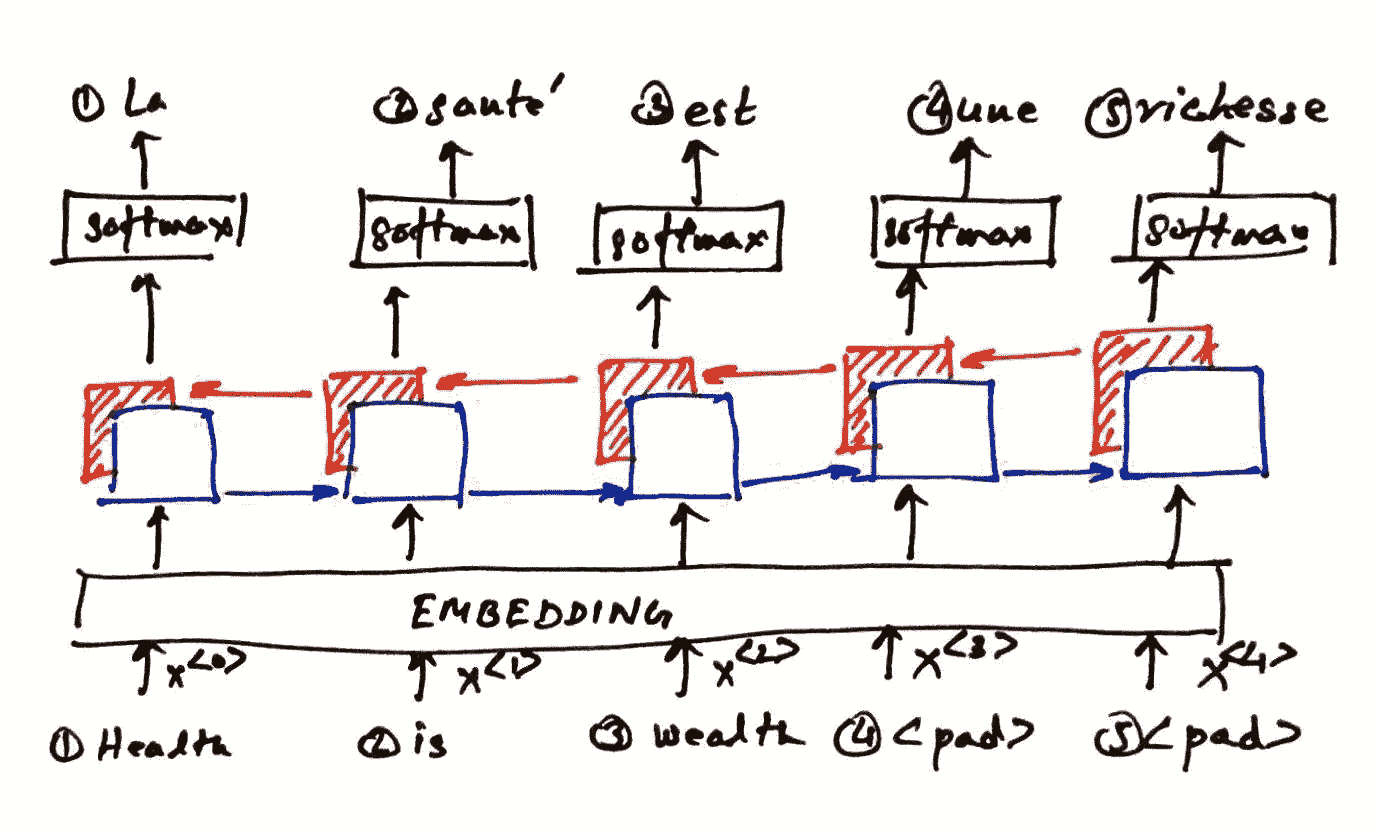 ① La ② santé ③ est ④ une ⑤ richesse
softmax softmax softmax softmax softmax
EMBEDDING
x<0> x<1> x<2> x<3> x<4>
① Health ② is ③ wealth ④ <pad> ⑤ <pad>